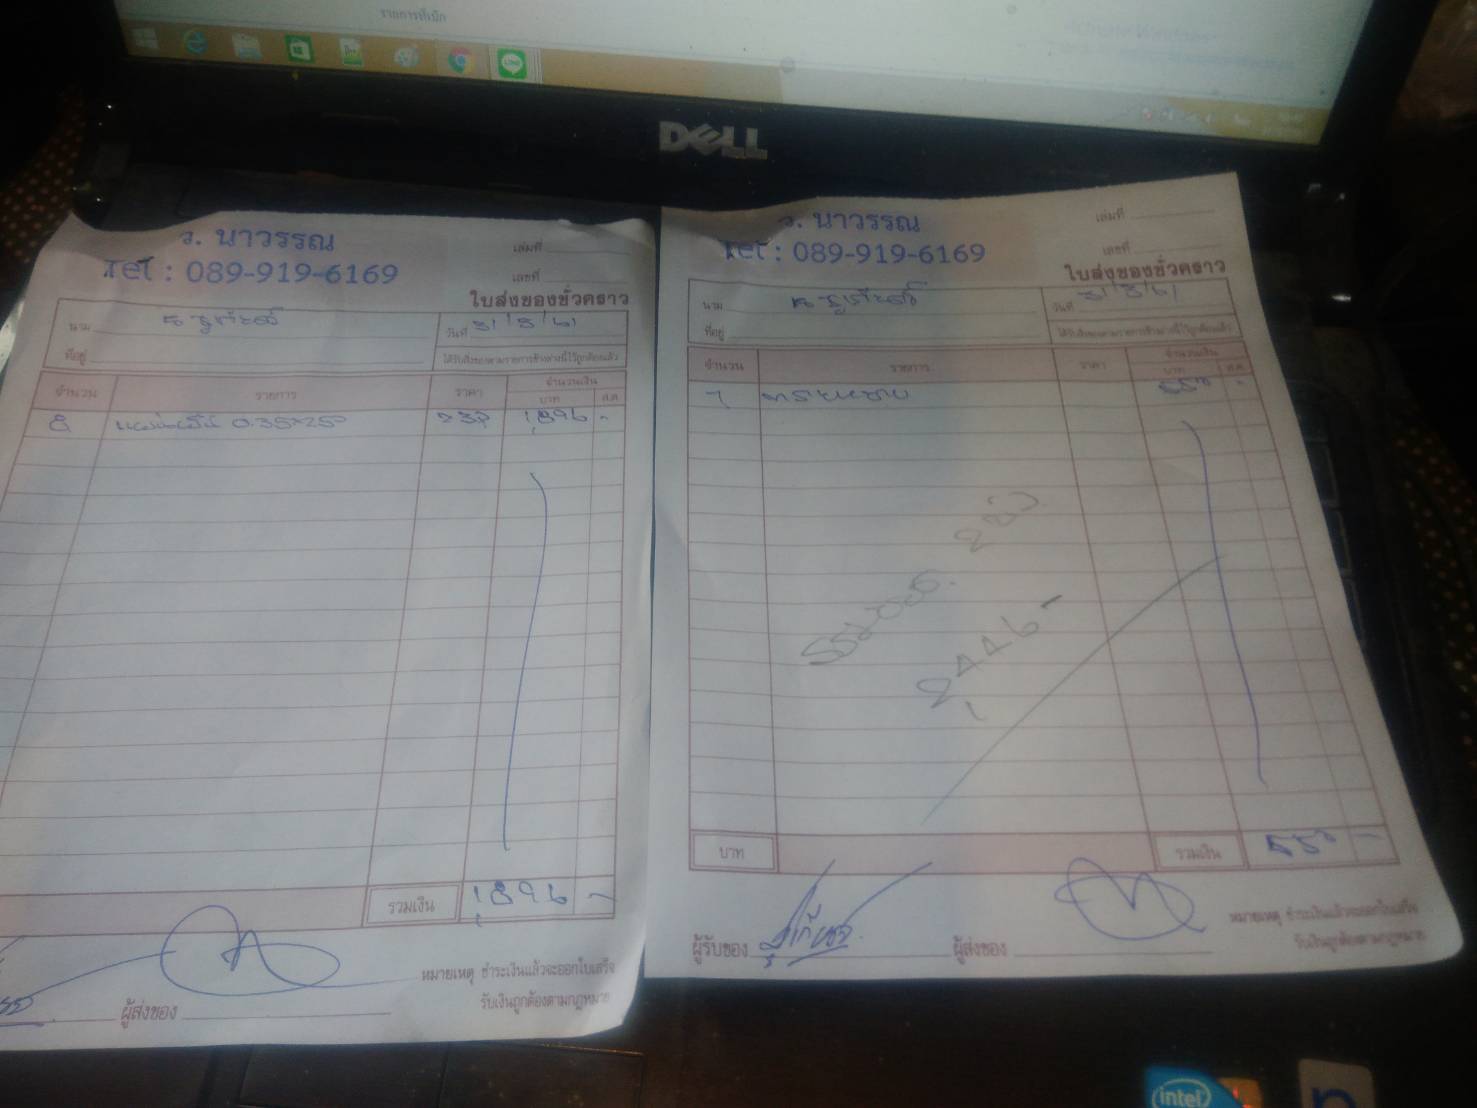 รายการที่เบิก
DELL
ว. นาวรรณ
Tel : 089-919-6169
เล่มที่
เลขที่
ใบส่งของชั่วคราว
นาม
วันที่ 31/5/61
ที่อยู่
ได้รับสิ่งของตามรายการข้างล่างนี้ไว้ถูกต้องแล้ว
จำนวน รายการ ราคา จำนวนเงิน
บาท ส.ต.
8 0.35x250 237 1,896 -
รวมเงิน 1,896 -
ผู้ส่งของ
หมายเหตุ ชำระเงินแล้วจะออกใบเสร็จ
รับเงินถูกต้องตามกฎหมาย
ว. นาวรรณ
Tel : 089-919-6169
เล่มที่
เลขที่
ใบส่งของชั่วคราว
นาม
วันที่ 31/5/61
ที่อยู่
ได้รับสิ่งของตามรายการข้างล่างนี้ไว้ถูกต้องแล้ว
จำนวน รายการ ราคา จำนวนเงิน
บาท ส.ต.
1 ทรายหยาบ 550 -
2,446 -
บาท รวมเงิน 550 -
ผู้รับของ ผู้ส่งของ
หมายเหตุ ชำระเงินแล้วจะออกใบเสร็จ
รับเงินถูกต้องตามกฎหมาย
intel